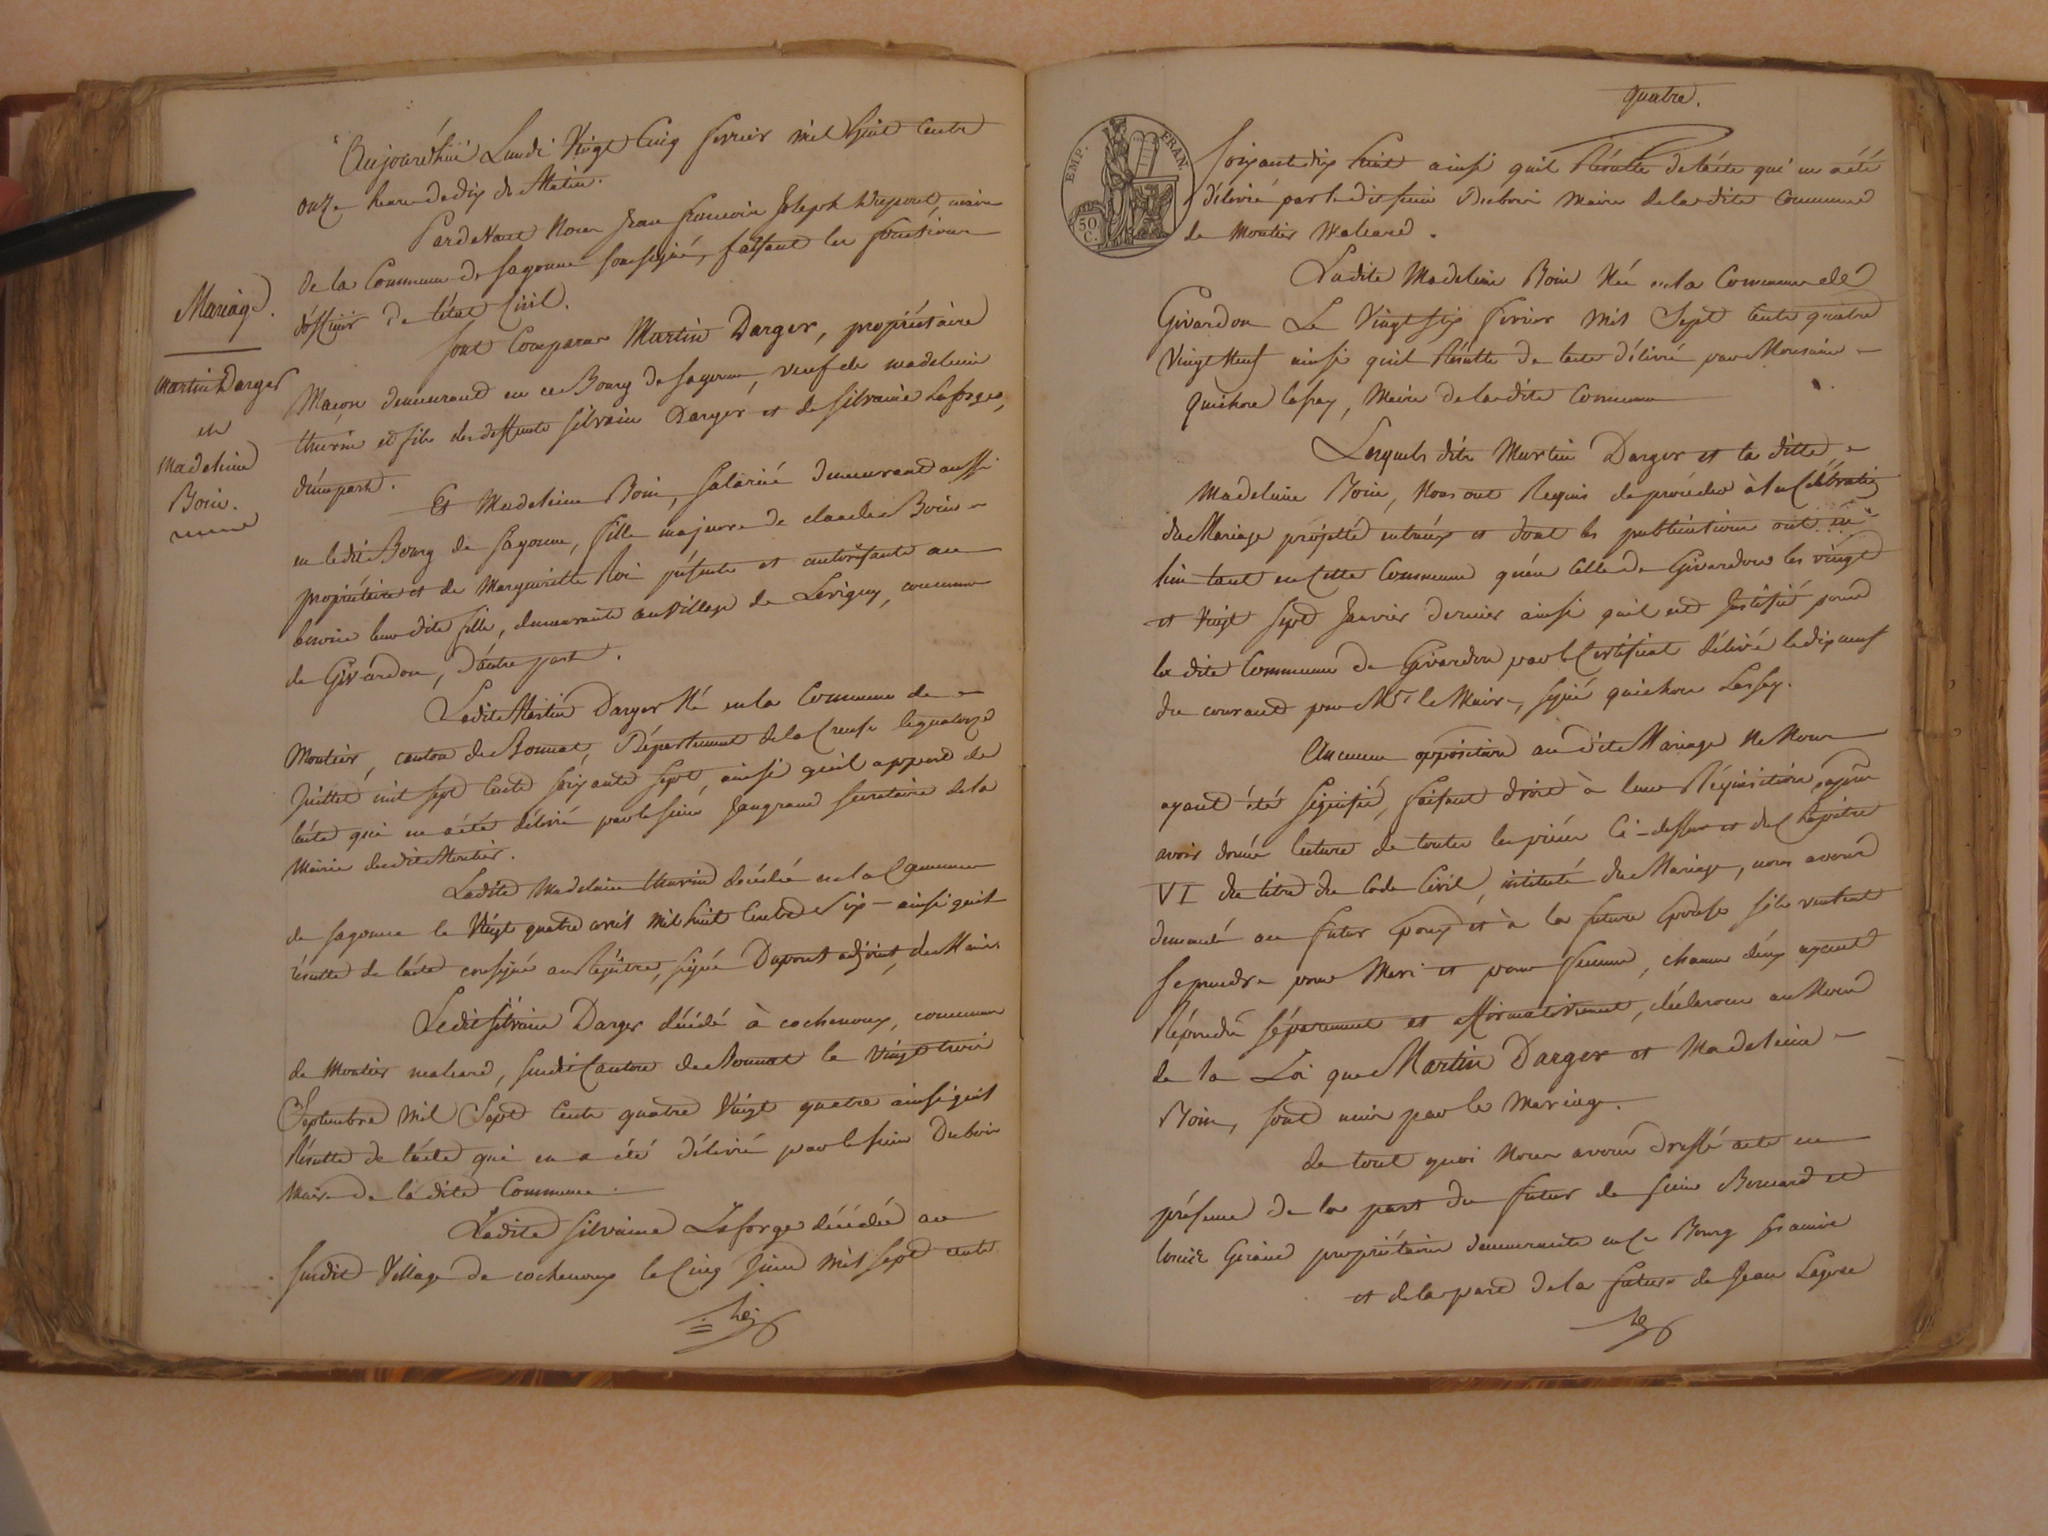 Mariage.
Martin Darger
et
Madeleine
Boin.
Aujourd'hui Lundi Vingt Cinq fevrier mil huit Cents
onze heure de dix du Matin.
Pardevant Nous Jean francois Joseph Dupont, maire
de la Commune de Sagonne soussigné, faisant les fonctions
d'officier de l'état Civil.
Sont Comparus Martin Darger, propriétaire
Maçon demeurant en ce Bourg de Sagonne, veuf de madeleine
thurin et fils des deffunts Silvain Darger et de Silvaine Laforge,
d'une part.
Et Madeleine Boin, salariée demeurant aussi
en ledit Bourg de Sagonne, fille majeure de claude Boin
propriétaire et de Marguerite Roi présents et autorisants au
besoin leur dite fille, demeurants au village de Levigny, commune
de Givardon, d'autre part.
Ledit Martin Darger Né en la Commune de
Moutier, canton de Bonnat, Département de la Creuse le quatorze
Juillet mil sept Cents soixante sept, ainsi qu'il appert de
l'acte qui en a été délivré par le sieur Jaugrand secretaire de la
Mairie dudit Moutier.
Ladite Madelaine thurin décédée en la Commune
de Sagonne le Vingt quatre avril mil huit Cents dix ainsi qu'il
résulte de l'acte consigné au Régistre, signé Dupont adjoint, du Maire.
Ledit Silvain Darger décédé à cochenoux, commune
de Moutier malcard, susdit Canton de Bonnat le Vingt trois
Septembre Mil Sept Cents quatre Vingt quatre ainsi qu'il
Résulte de l'acte qui en a été délivré par le sieur Dubois
Maire de ladite Commune.
Ladite Silvaine Laforge décédée au
susdit Village de cochenoux le Cinq Juin Mil Sept cents
quatre.
EMP. FRAN.
50 C.
soixante dix huit ainsi qu'il Résulte de l'acte qui en a été
délivré par ledit sieur Dubois Maire de ladite Commune
de Moutier Malcard.
Ladite Madeleine Boin Née en la Commune de
Givardon Le Vingt six fevrier Mil Sept Cents quatre
Vingt Neuf ainsi qu'il Résulte de l'acte délivré par Monsieur
quichon Lafay, Maire de ladite Commune
Lesquels dits Martin Darger et la ditte
Madeleine Boin, Nous ont Requis de procéder à la Célébration
du Mariage projetté entr'eux et dont les publications ont eu
lieu tant en Cette Commune qu'en Celle de Givardon les vingt
et Vingt sept Janvier dernier ainsi qu'il est Justifié pour
la dite Commune de Givardon par le Certificat délivré le dix neuf
du courant par Mr le Maire, signé quichon Lafay.
Aucune opposition au dit Mariage Ne Nous
ayant été signifiée, faisant droit à leur Réquisition, après
avoir donné lecture de toutes les pièces Ci-dessus et du Chapitre
VI du titre du Code Civil, intitulé du Mariage, nous avons
demandé au futur Epoux et à la future Epouse s'ils veulent
se prendre pour Mari et pour femme, chacun d'eux ayant
Répondu séparement et affirmativement, déclarons au Nom
de la Loi que Martin Darger et Madeleine
Boin, sont unis par le Mariage.
De tout quoi Nous avons dressé acte en
présence de la part du futur de sieurs Bernard et
Louis Geraud propriétaires demeurants en ce Bourg
et de la part de la future de Jean